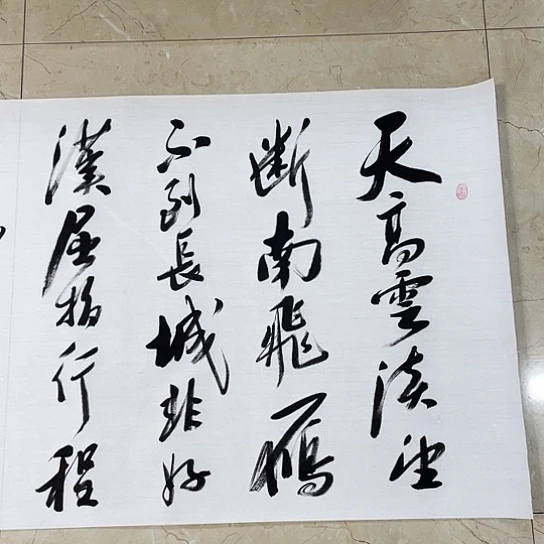 天高雲淡望
斷南飛雁
不到長城非好
漢屈指行程